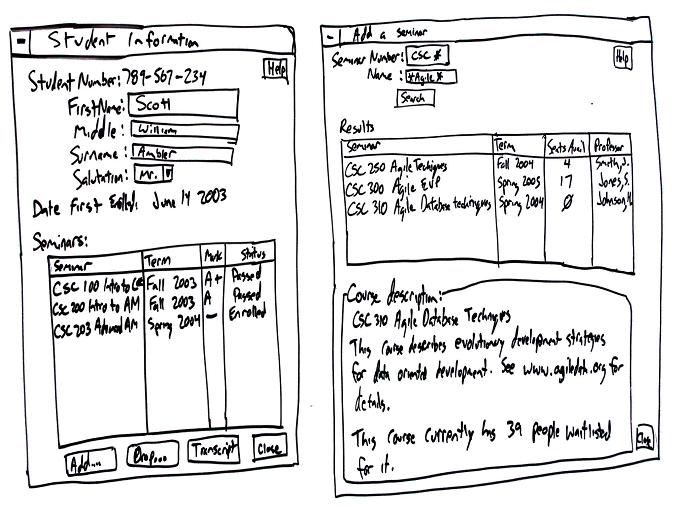 Student Information
Help
Student Number: 789-567-234
First Name: Scott
Middle: William
Surname: Ambler
Salutation: Mr.
Date First Enrolled: June 14 2003
Seminars:
Seminar Term Mark Status
CSC 100 Intro to Fall 2003 A+ Passed
CSC 200 Intro to AM Fall 2003 A Passed
CSC 203 Advanced AM Spring 2004 — Enrolled
Add... Drop... Transcript Close
Add a seminar
Help
Seminar Number: CSC *
Name: *Agile*
Search
Results
Seminar Term Seats Avail Professor
CSC 250 Agile Techniques Fall 2004 4 Smith, J.
CSC 300 Agile EUP Spring 2005 17 Jones, S.
CSC 310 Agile Database techniques Spring 2004 Ø Johnson,
Course description:
CSC 310 Agile Database Techniques
This course describes evolutionary development strategies
for data oriented development. See www.agiledata.org for
details.
This course currently has 39 people waitlisted
for it.
Close